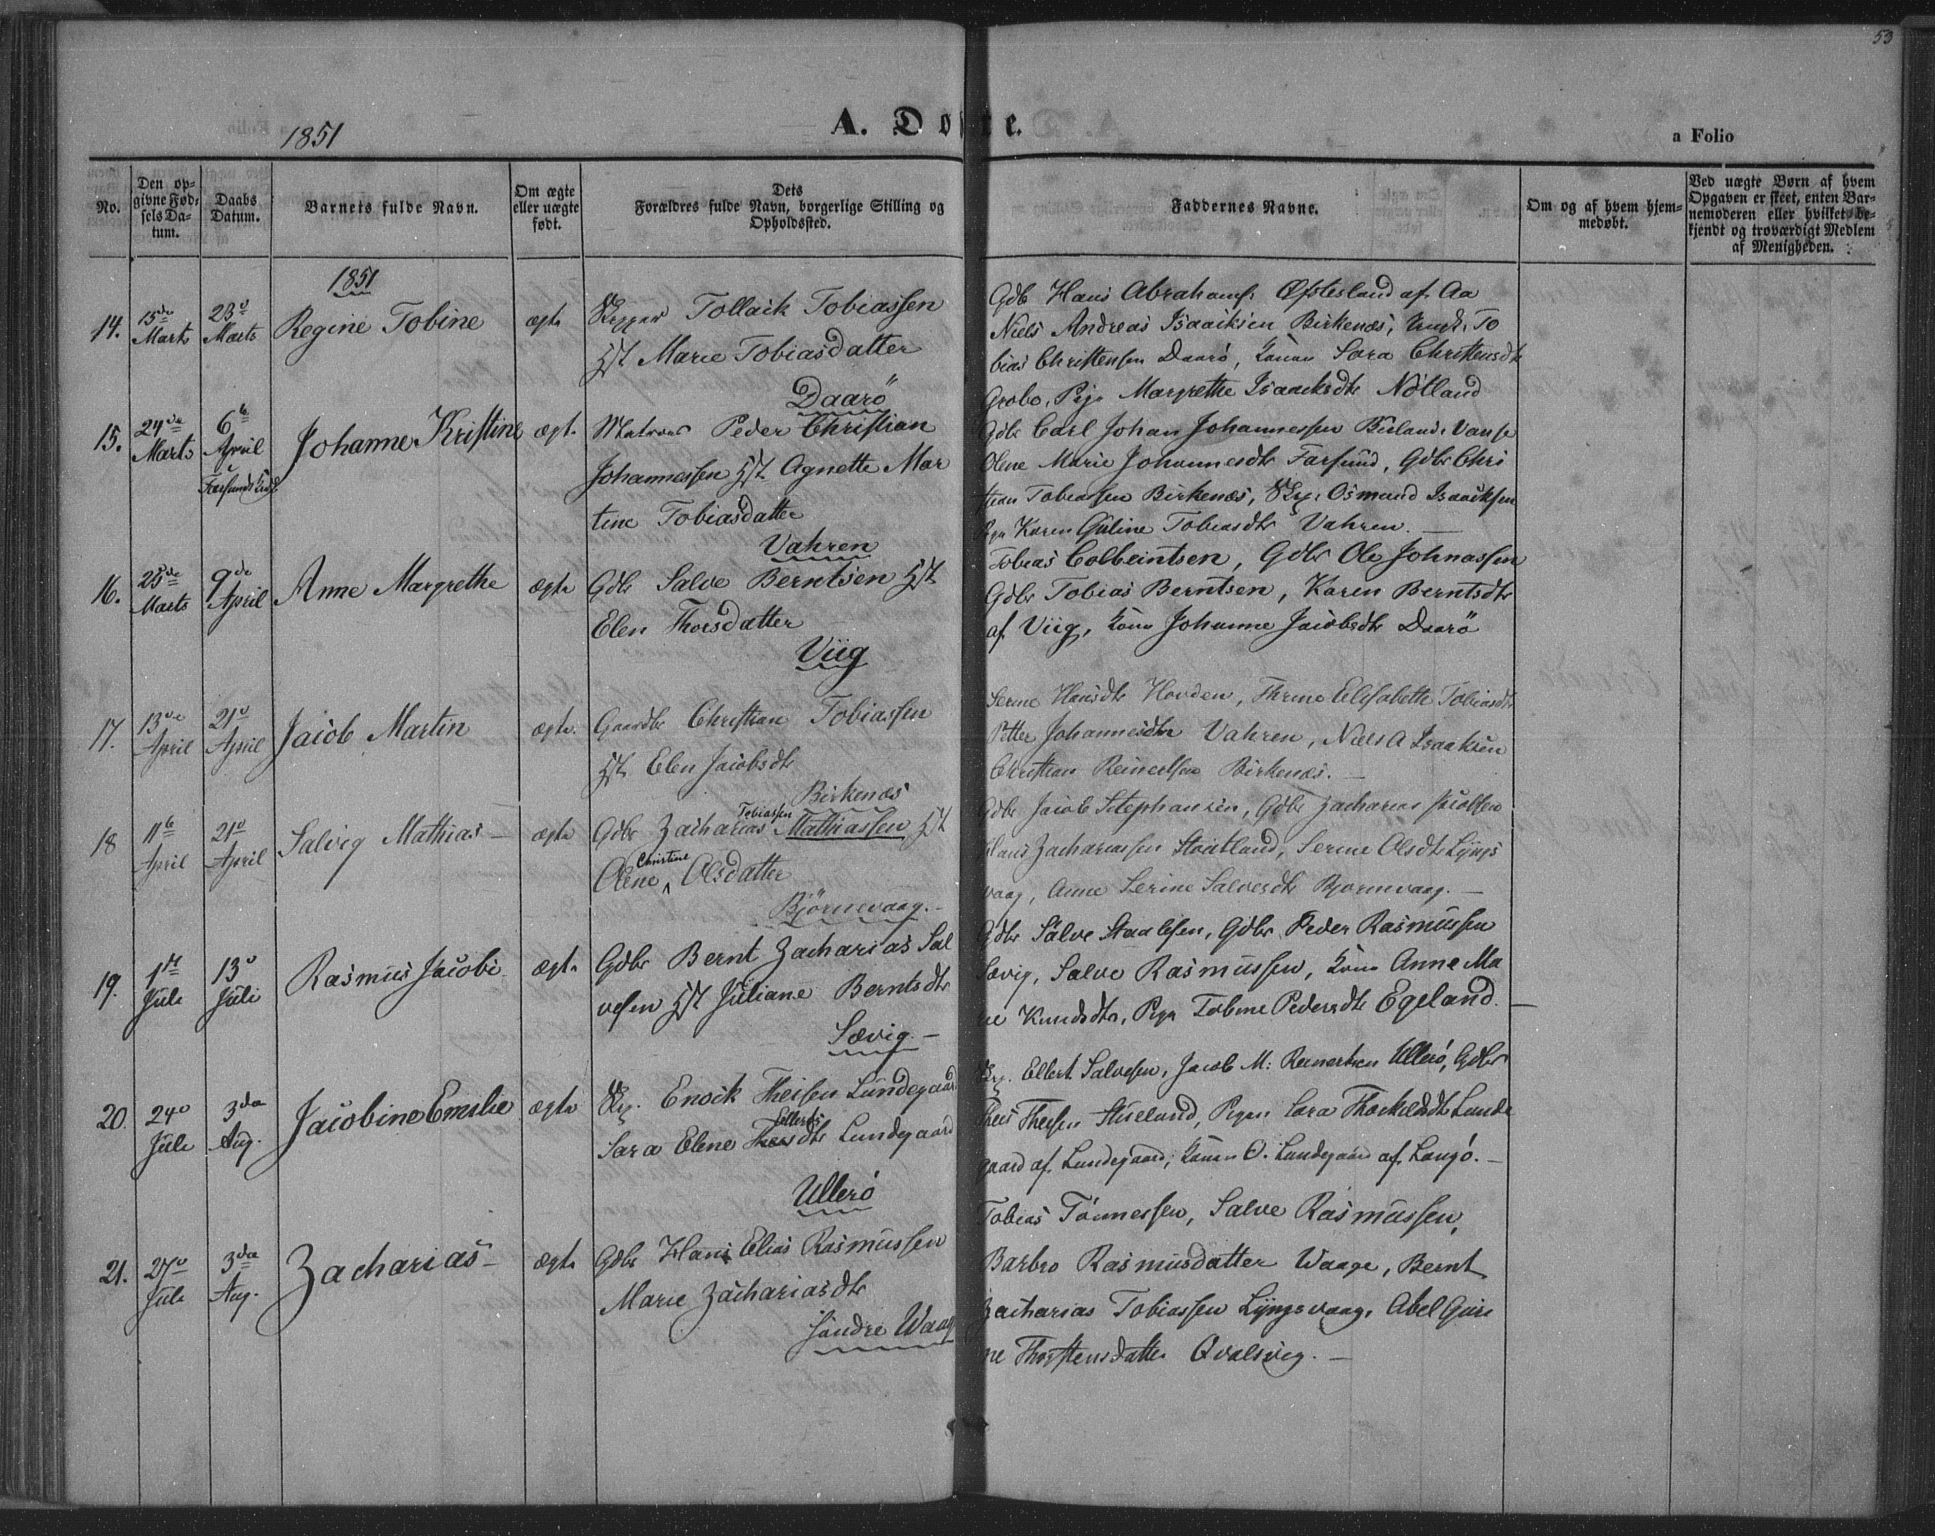 53
1851
A. Do te.
a Folio
No.
Den op-
givne Fød-
sels Da-
tum.
Daabs
Datum.
Barnets fulde Navn.
Om ægte
eller uægte
født.
Dets
Forældres fulde Navn, borgerlige Stilling og
Opholdssted.
Faddernes Navne.
Om og af hvem hjem-
medøbt.
Ved uægte Børn af hvem
Opgaven er skeet, enten Bar-
nemoderen eller hvilket be-
kjendt og troværdigt Medlem
af Menigheden.
1851
14.
15de
Marts
23d
Marts
Regine Tobine
ægte
Skipper Tollack Tobiassen
Hst Marie Tobiasdatter
Daarö
Gdb Hans Abrahams. Øftesland af Aa
Niels Andreas Isaaksen Birkenæs, Ungk. To
bias Christensen Daarö, Konen Sara Christensdt
Grobo, Pige Margrethe Isaacksdt Nötland
15.
24de
Marts
6te
April
Farsunds
Johanne Kristine
ægte
Matros Peder Christian
Johannessen Hst Agnette Mar
tine Tobiasdatter
Vahren
Gdb Carl Johan Johannessen Vanse
Olene Marie Johannesdt Farsund, Gdbr Chri
stian Tobiassen Birkenæs, Skp. Osmund Isaacksen
Pige Karen Guline Tobiasdt Vahren.
16.
25de
Marts
9de
April
Anne Margrethe
ægte
Gdbr Salve Berntsen Hst
Elen Thorsdatter
Viig
Tobias Colbeintsen, Gdbr Ole Johnassen
Gdbr Tobias Berntsen, Karen Berntsdt
af Viig, Kone Johanne Jacobsdt Daarö
17.
13de
April
21d
April
Jacob Martin
ægte.
Gaardbr Christian Tobiassen
Hst Elen Jacobsdt
Birkenæs
Serine Hansdt Hovden, Thrine Elisabeth Tobiasdt
Petter Johannesdtr Vahren, Niels A Isaaksen
Christian Reinertsen Birkenæs.
18
11te
April
21d
April
Salvig Mathias
ægte
Gdbr Zacharias Tobiassen Mathiassen Hst
Olene Christine Olsdatter
Björnevaag.
Gdbr Jacob Stephansen, Gdbr Zacharias Jacobsen
Hans Zachariassen Stoutland, Serine Olsdt Lyngs
vaag, Anne Serine Salvesdt Bjornevaag.
19.
1st
Juli
13d
Juli
Rasmus Jacob
ægte
Gdbr Bernt Zacharias Sal
vesen Hst Juliane Berntsdt
Sævig.
Gdbr Salve Staalesen, Gdbr Peder Rasmussen
Sævig, Salve Rasmussen, Kone Anne Ma
rie Knudsdtr, Pige Tobine Pedersdt Egeland.
20.
24d
Juli
3die
Aug.
Jacobine Emelie
ægte
Skp. Enoch Theisen Lundegaard
Sara Elene Ellertsdt Lundegaard
Ullerö
Skp. Ellert Salvesen, Jacob M: Reinertsen Ullerö, Gdbr
Theis Theisen Stuseland, Pigen Sara Thorkildsdt Lunde
gaard af Lundegaard, Konen O. Lundegaard af Langö.
21.
27d
Juli
3die
Aug.
Zacharias
ægte
Gdbr Hans Elias Rasmussen
Marie Zachariasdt
Söndre Waag
Tobias Tönnessen, Salve Rasmussen,
Barbro Rasmusdatter Waage, Bernt
Zacharias Tobiassen Lyngsvaag, Abel Guri
ne Thorstensdatter Qvalsvig.